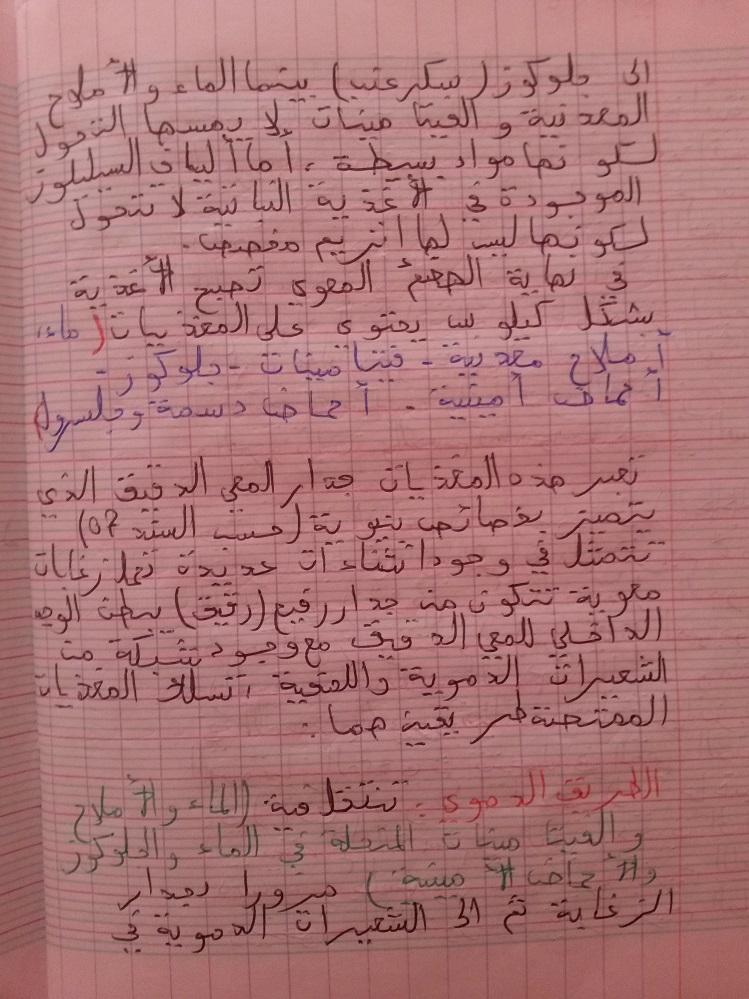 الى جلوكوز (سكر عنب) بينما الماء والأملاح
المعدنية و الفيتامينات لا يمسها التحول
لكونها مواد بسيطة، أما ألياف السليلوز
الموجودة في الأغذية النباتية لا تتحول
لكونها ليس لها انزيم مفصص.
في نهاية الهضم المعوي تصبح الأغذية
بشكل كيلوس يحتوي على المغذيات (ماء،
أملاح معدنية - فيتامينات - جلوكوز -
أحماض أمينية - أحماض دسمة وجلسرول)
تعبر هذه المغذيات جدار المعي الدقيق الذي
يتميز بخصائص بنيوية (حسب السند 07)
تتمثل في وجود انثناءات عديدة تحمل زغابات
معوية تتكون من جدار رفيع (رقيق) يبطن الوجه
الداخلي للمعي الدقيق مع وجود شبكة من
الشعيرات الدموية واللمفية، تسلك المغذيات
الممتصة طريقين هما:
الطريق الدموي: تنتقل فيه (الماء والأملاح
والفيتامينات المنحلة في الماء والجلوكوز
والأحماض الأمينية) مرورا بجدار
الزغابة ثم الى الشعيرات الدموية في